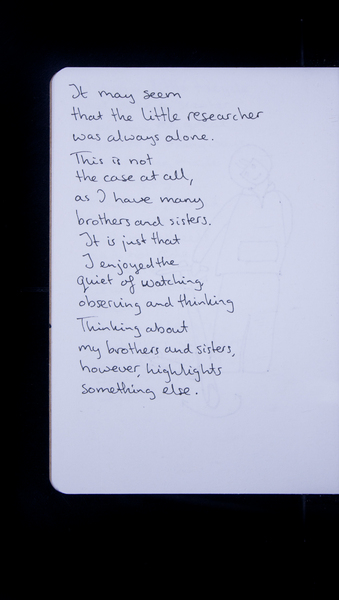 It may seem
that the little researcher
was always alone.
This is not
the case at all,
as I have many
brothers and sisters.
It is just that
I enjoyed the
quiet of watching
observing and thinking
Thinking about
my brothers and sisters,
however, highlights
something else.